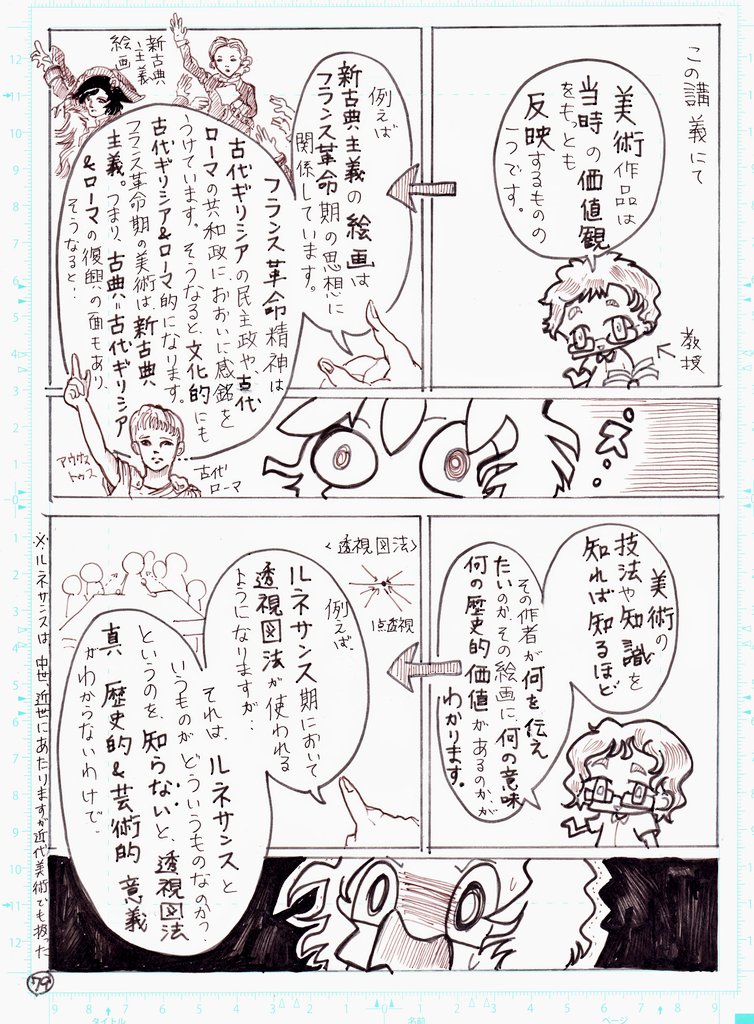 この講義にて
美術作品は
当時の価値観
をもっとも
反映するものの
一つです。
教授
例えば
新古典主義の絵画は
フランス革命期の思想に
関係しています。
新古典
主義
絵画
フランス革命精神は
古代ギリシアの民主政や古代
ローマの共和政におおいに感銘を
うけています。そうなると、文化的にも
古代ギリシア&ローマ的になります。
フランス革命期の美術は新古典
主義。つまり、古典=古代ギリシア
&ローマの復興の面もあり、
そうなると…
古代
ローマ
アウグス
トゥス
ズ…
美術の
技法や知識を
知れば知るほど
その作者が何を伝え
たいのか、その絵画に、何の意味
何の歴史的価値があるのか、が
わかります。
<透視図法>
1点透視
例えば、
ルネサンス期において
透視図法が使われる
ようになりますが…
それは、ルネサンスと
いうものがどういうものなのかっ
というのを、知らないと、透視図法
真 歴史的&芸術的意義
がわからないわけで、
※ルネサンスは、中世、近世にあたりますが近代美術でも扱った
79
タイトル
名前
ページ